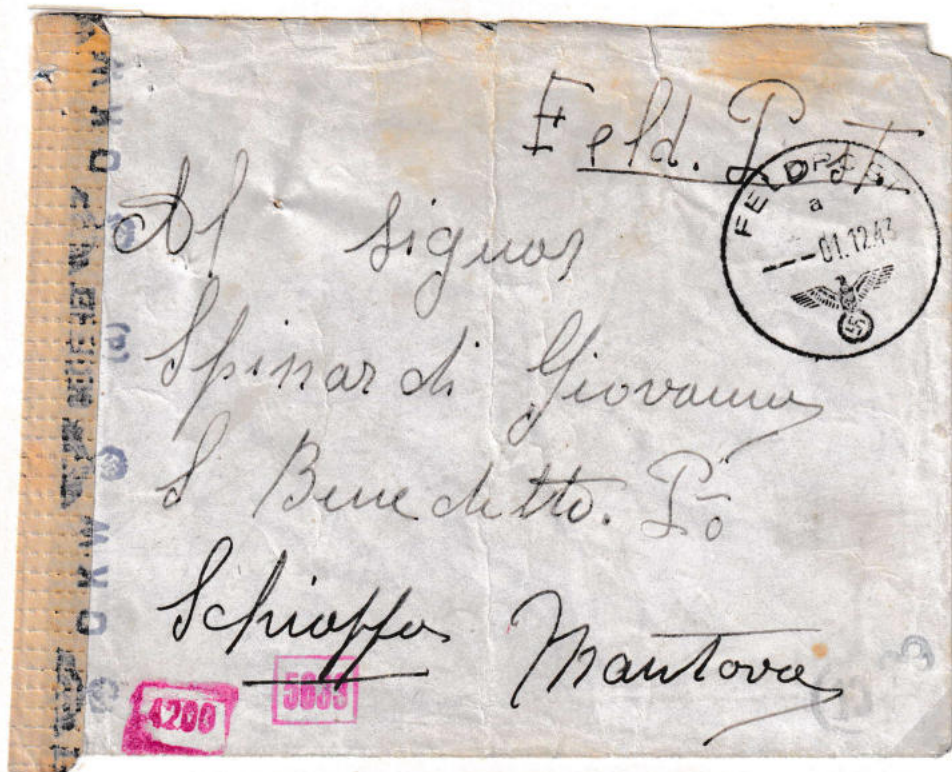 Feld. Post
FELDPOST
a
- - - 01.12.43
Al signor
Spinardi Giovanni
S Benedetto. Pò
Schiappa Mantova
4200
5033
O K W
O K W